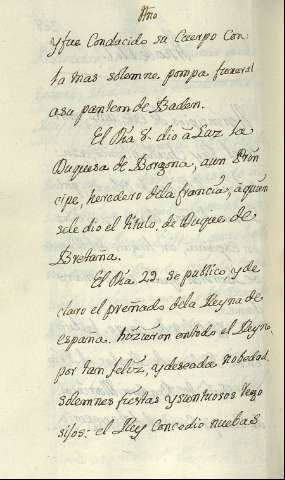 Año
y fue Conducido su Cuerpo Con
la mas solemne pompa funeral
a su panteon de Baden.
El Dia 8. dió à Luz la
Duquesa de Borgona, a un Prin
cipe, heredero de la francia, à quien
se le dio el titulo, de Duque de
Bretaña.
El Dia 29. se publico y de
claro el preñado de la Reyna de
españa. hizieron en todo el Reyno,
por tan feliz, y deseada nobedad
solemnes fiestas y suntuosos rego
sijos: el Rey Concedio nuebas